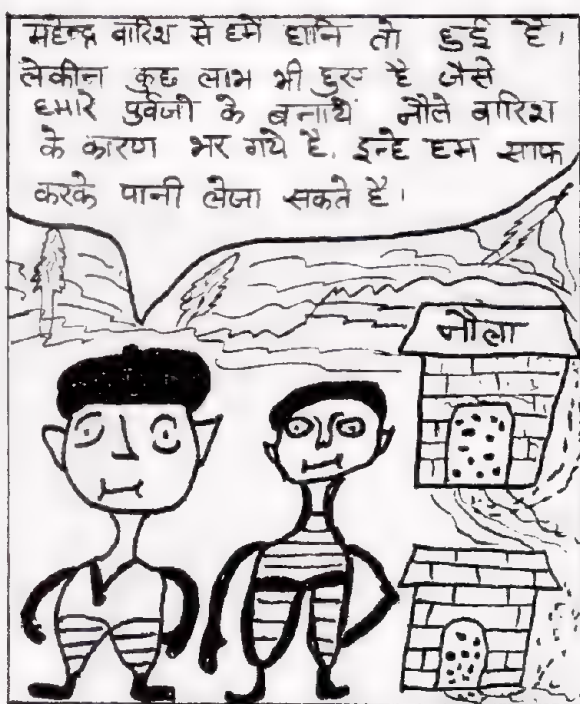 महेन्द्र वारिश से हमें हानि तो हुई है।
लेकीन कुछ लाभ भी हुए है जैसे
हमारे पुर्वजो के बनाये नौले वारिश
के कारण भर गये है. इन्हे हम साफ
करके पानी लेजा सकते है।
नौला